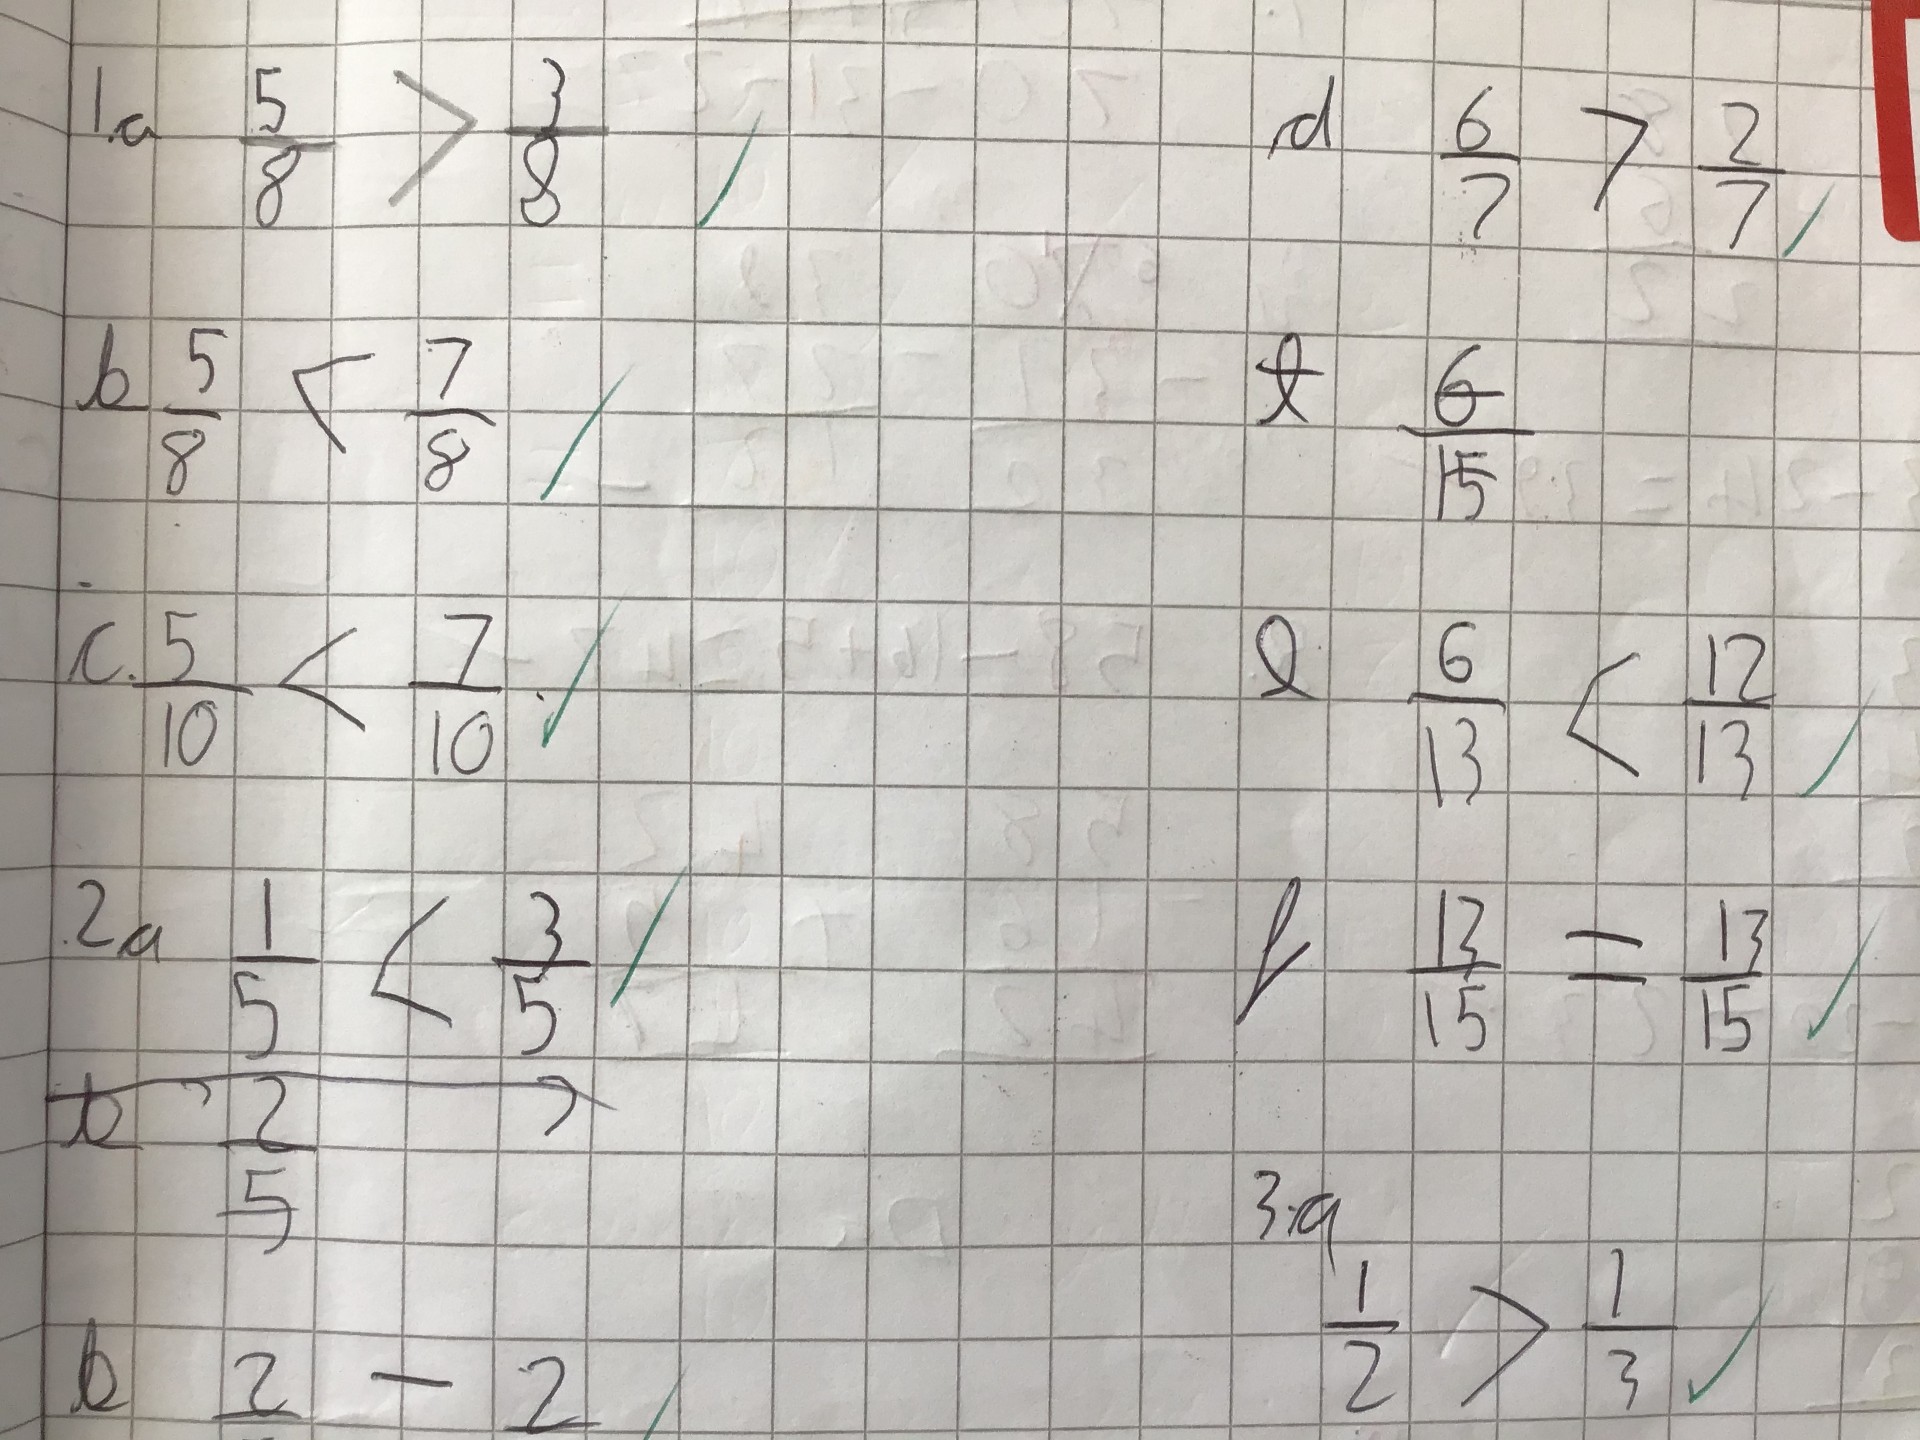 1.a 5/8 > 3/8
b 5/8 < 7/8
c. 5/10 < 7/10
2a 1/5 < 3/5
b 2/5 >
b 2 – 2
d 6/7 > 2/7
6/15
e 6/13 < 12/13
f 13/15 = 13/15
3.a
1/2 > 1/3